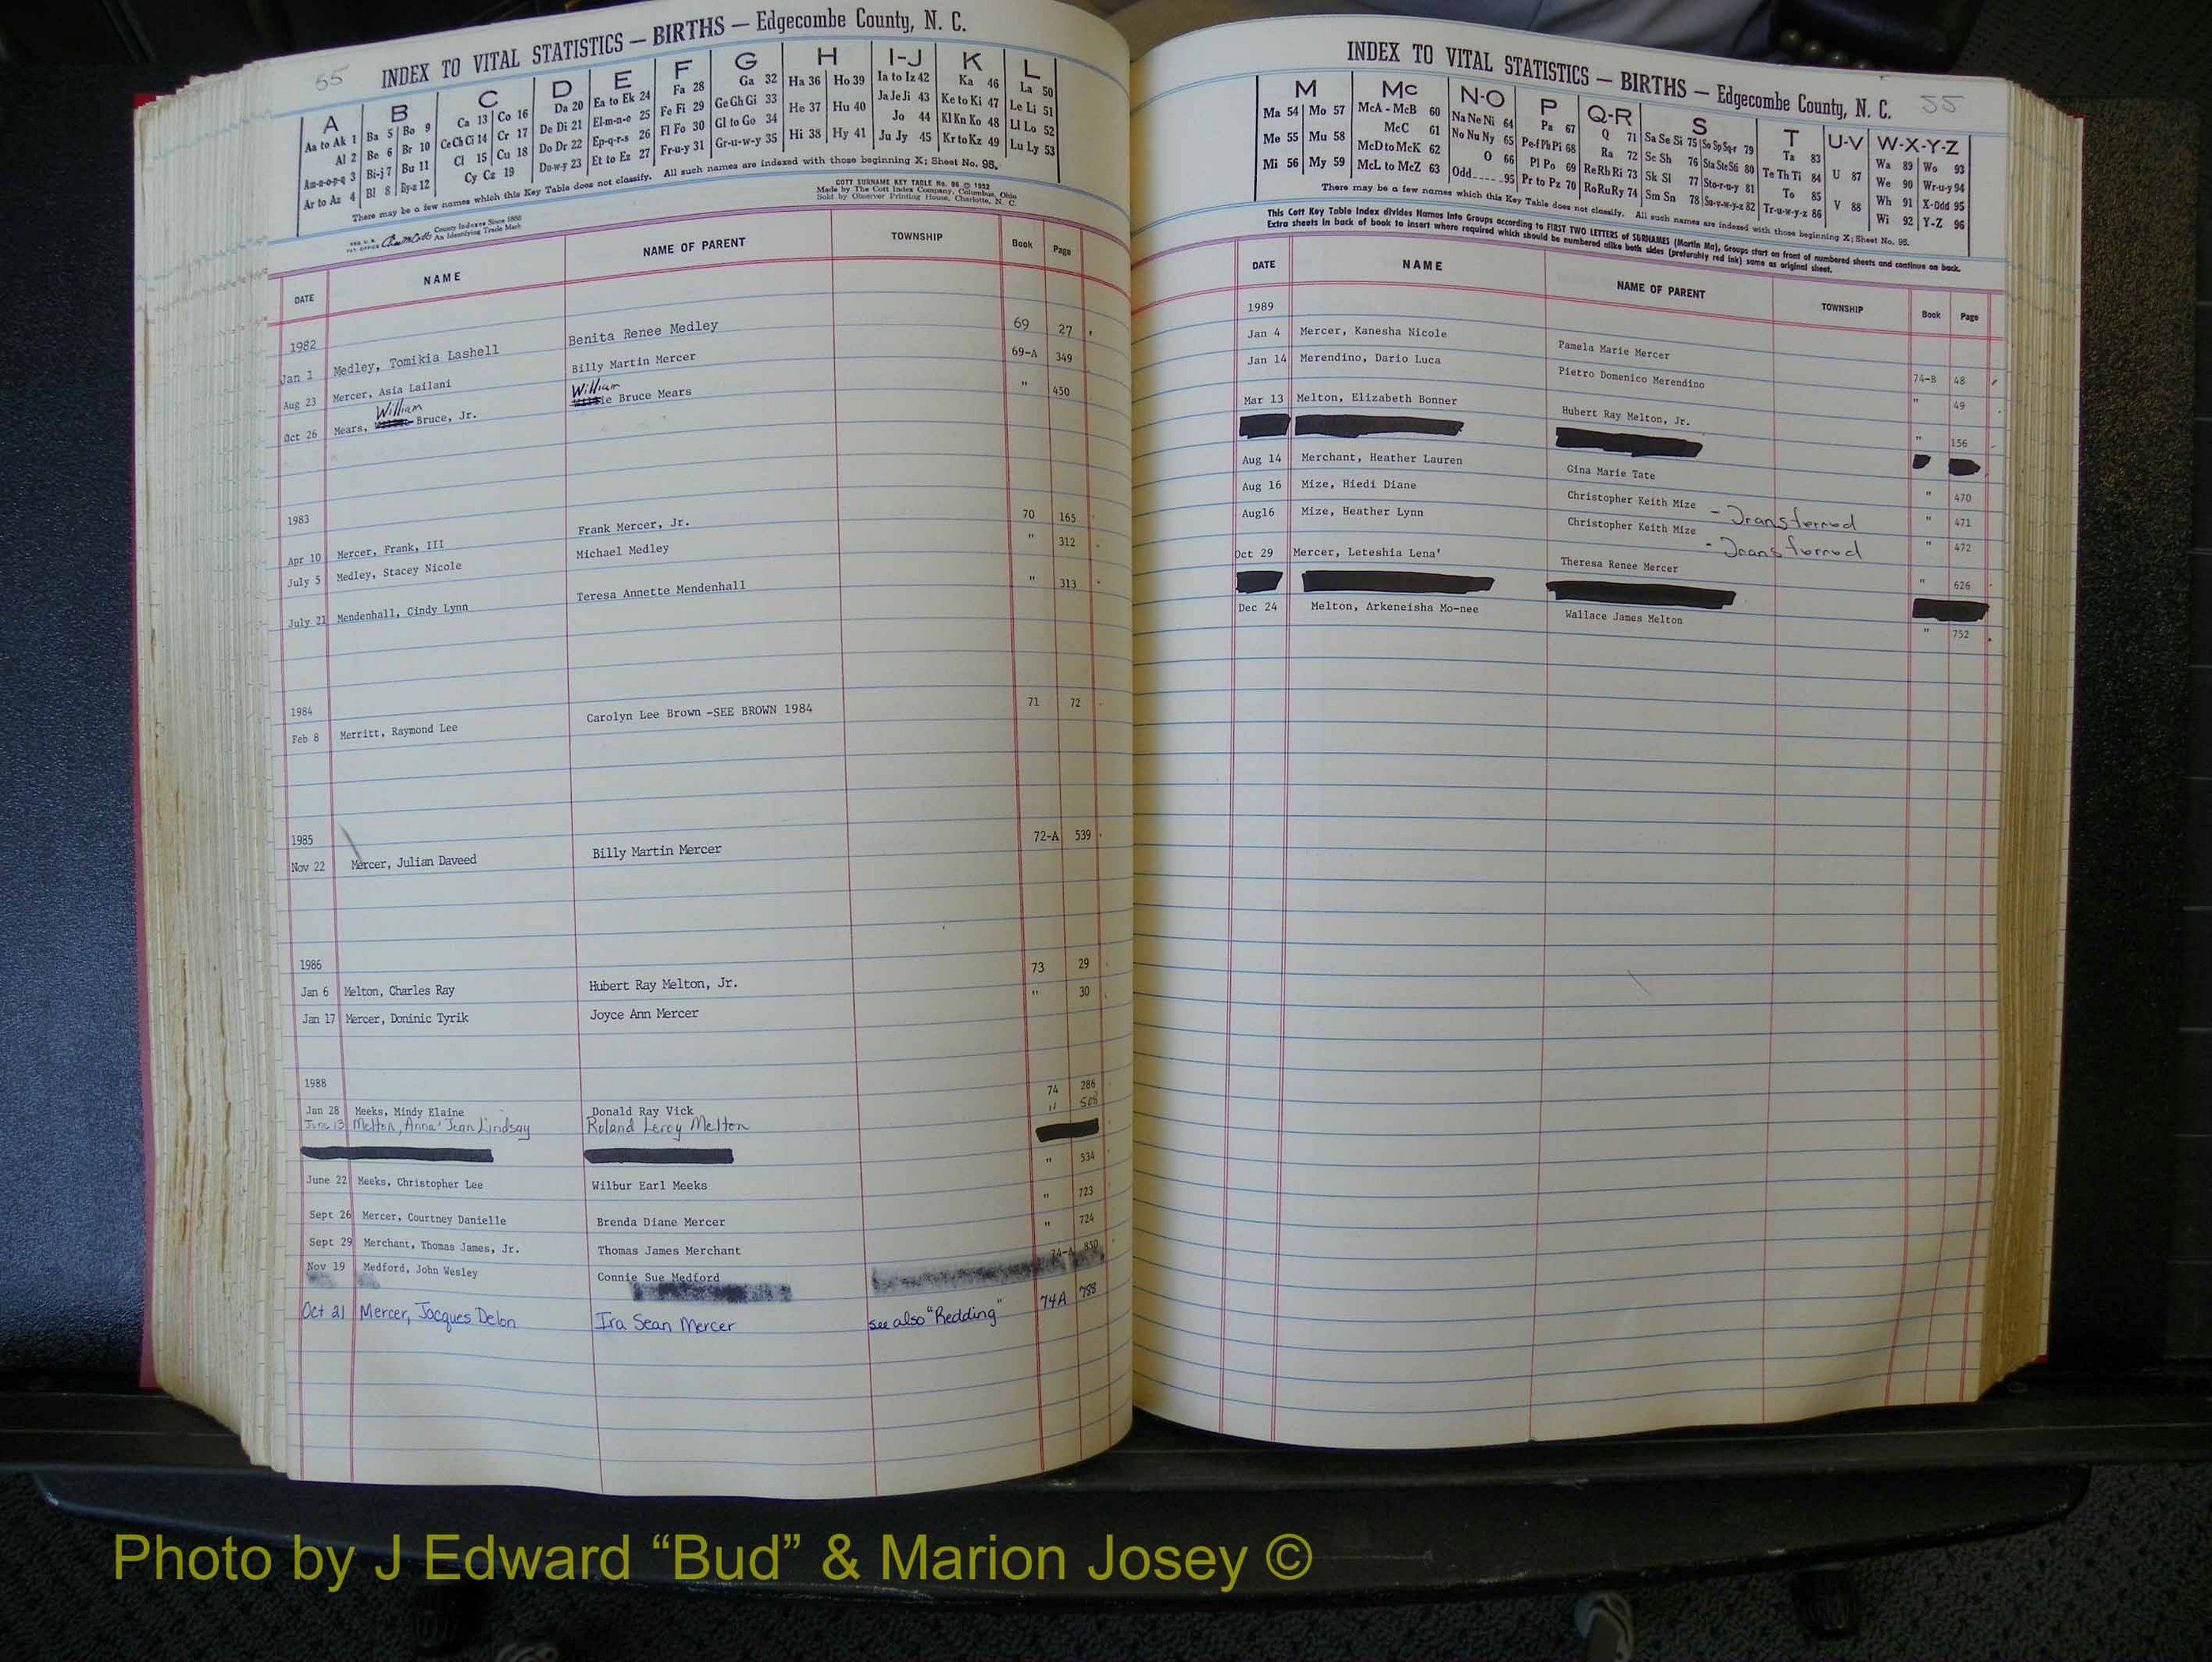 55 INDEX TO VITAL STATISTICS — BIRTHS — Edgecombe County, N. C.
A B C D E F G H I-J K L
Aa to Ak 1 Ba 5 Bo 9 Ca 13 Co 16 Da 20 Ea to Ek 24 Fa 28 Ga 32 Ha 36 Ho 39 Ia to Iz 42 Ka 46 La 50
Al 2 Be 6 Br 10 Ce Ch Ci 14 Cr 17 De Di 21 El-m-n-o 25 Fe Fi 29 Ge Gh Gi 33 He 37 Hu 40 Ja Je Ji 43 Ke to Ki 47 Le Li 51
Am-n-o-p-q 3 Bi-j 7 Bu 11 Cl 15 Cu 18 Do Dr 22 Ep-q-r-s 26 Fl Fo 30 Gl to Go 34 Hi 38 Hy 41 Jo 44 Kl Kn Ko 48 Ll Lo 52
Ar to Az 4 Bl 8 By-z 12 Cy Cz 19 Du-w-y 23 Et to Ez 27 Fr-u-y 31 Gr-u-w-y 35 Ju Jy 45 Kr to Kz 49 Lu Ly 53
There may be a few names which this Key Table does not classify. All such names are indexed with those beginning X; Sheet No. 95.
County Indexes Since 1888
An Identifying Trade Mark
COTT SURNAME KEY TABLE No. 96 © 1932
Made by The Cott Index Company, Columbus, Ohio
Sold by Observer Printing House, Charlotte, N. C.
DATE NAME NAME OF PARENT TOWNSHIP Book Page
1982
Jan 1 Medley, Tomikia Lashell Benita Renee Medley 69 27
Aug 23 Mercer, Asia Lailani Billy Martin Mercer 69-A 349
William William
Oct 26 Mears, Bruce, Jr. ie Bruce Mears " 450
1983
Apr 10 Mercer, Frank, III Frank Mercer, Jr. 70 165
July 5 Medley, Stacey Nicole Michael Medley " 312
July 21 Mendenhall, Cindy Lynn Teresa Annette Mendenhall " 313
1984
Feb 8 Merritt, Raymond Lee Carolyn Lee Brown -SEE BROWN 1984 71 72
1985
Nov 22 Mercer, Julian Daveed Billy Martin Mercer 72-A 539
1986
Jan 6 Melton, Charles Ray Hubert Ray Melton, Jr. 73 29
Jan 17 Mercer, Doninic Tyrik Joyce Ann Mercer " 30
1988
Jan 28 Meeks, Mindy Elaine Donald Ray Vick 74 286
June 13 Melton, Anna Jean Lindsay Roland Leroy Melton " 508
June 22 Meeks, Christopher Lee Wilbur Earl Meeks " 534
Sept 26 Mercer, Courtney Danielle Brenda Diane Mercer " 723
Sept 29 Merchant, Thomas James, Jr. Thomas James Merchant " 724
Nov 19 Medford, John Wesley Connie Sue Medford 74-A 850
Oct 21 Mercer, Jacques Delon Ira Sean Mercer see also "Redding" 74A 788
INDEX TO VITAL STATISTICS — BIRTHS — Edgecombe County, N. C. 55
M Mc N-O P Q-R S T U-V W-X-Y-Z
Ma 54 Mo 57 McA - McB 60 Na Ne Ni 64 Pa 67 Q 71 Sa Se Si 75 So Sp Sq-r 79 Ta 83 U 87 Wa 89 Wo 93
Me 55 Mu 58 McC 61 No Nu Ny 65 Pe-f Ph Pi 68 Ra 72 Sc Sh 76 Sta Ste Sti 80 Te Th Ti 84 We 90 Wr-u-y 94
Mi 56 My 59 McD to McK 62 O 66 Pl Po 69 Re Rh Ri 73 Sk Sl 77 Sto-r-u-y 81 To 85 V 88 Wh 91 X-Odd 95
McL to McZ 63 Odd 95 Pr to Pz 70 Ro Ru Ry 74 Sm Sn 78 Su-v-w-y-z 82 Tr-u-w-y-z 86 Wi 92 Y-Z 96
There may be a few names which this Key Table does not classify. All such names are indexed with those beginning X; Sheet No. 95.
This Cott Key Table Index divides Names into Groups according to FIRST TWO LETTERS of SURNAMES (Martin Ma), Groups start on front of numbered sheets and continue on back.
Extra sheets in back of book to insert where required which should be numbered alike both sides (preferably red ink) same as original sheet.
DATE NAME NAME OF PARENT TOWNSHIP Book Page
1989
Jan 4 Mercer, Kanesha Nicole Pamela Marie Mercer 74-B 48
Jan 14 Merendino, Dario Luca Pietro Domenico Merendino " 49
Mar 13 Melton, Elizabeth Bonner Hubert Ray Melton, Jr. " 156
Aug 14 Merchant, Heather Lauren Gina Marie Tate " 470
Aug 16 Mize, Hiedi Diane Christopher Keith Mize - Transferred " 471
Aug16 Mize, Heather Lynn Christopher Keith Mize - Transferred " 472
Oct 29 Mercer, Leteshia Lena' Theresa Renee Mercer " 626
Dec 24 Melton, Arkeneisha Mo-nee Wallace James Melton " 752
Photo by J Edward “Bud” & Marion Josey ©